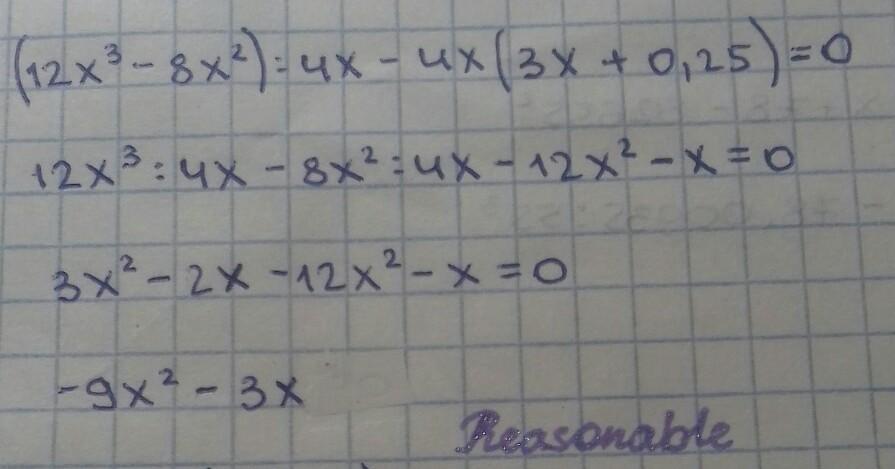 (12x³ - 8x²) : 4x - 4x(3x + 0,25) = 0
12x³ : 4x - 8x² : 4x - 12x² - x = 0
3x² - 2x - 12x² - x = 0
-9x² - 3x
Reasonable